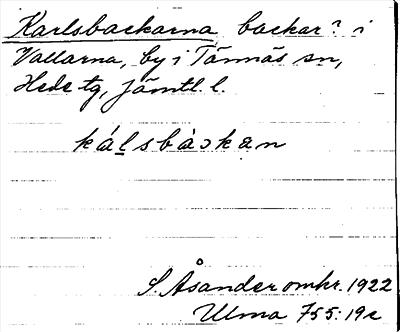 Karlsbackarna backar? i
Vallarna, by i Tännäs sn,
Hede tg, Jämtl. l.
kálsbàckan
S. Åsander omkr. 1922
Ulma 755:19c